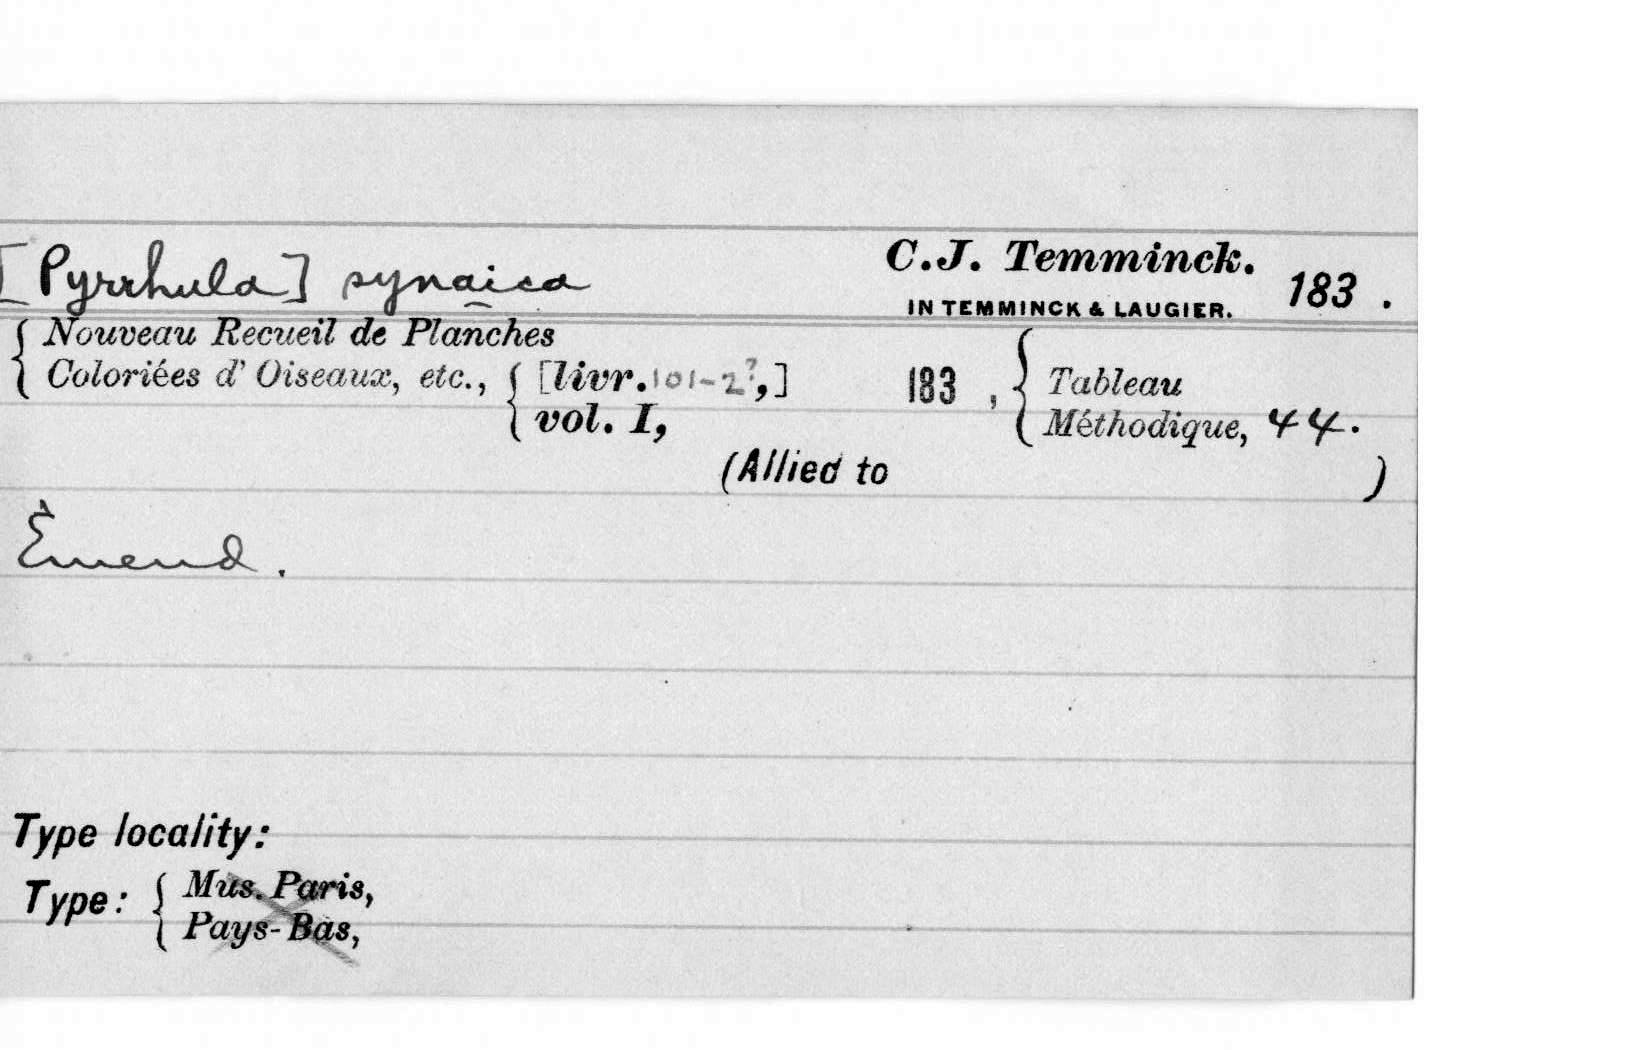 [Pyrrhula] synaica C.J. Temminck. 183 .
IN TEMMINCK & LAUGIER.
{ Nouveau Recueil de Planches
Coloriées d' Oiseaux, etc., { [livr. 101-2?,] 183 , { Tableau
vol. I, Méthodique, 44.
(Allied to )
Emend.
Type locality:
Type: { Mus. Paris,
Pays-Bas,